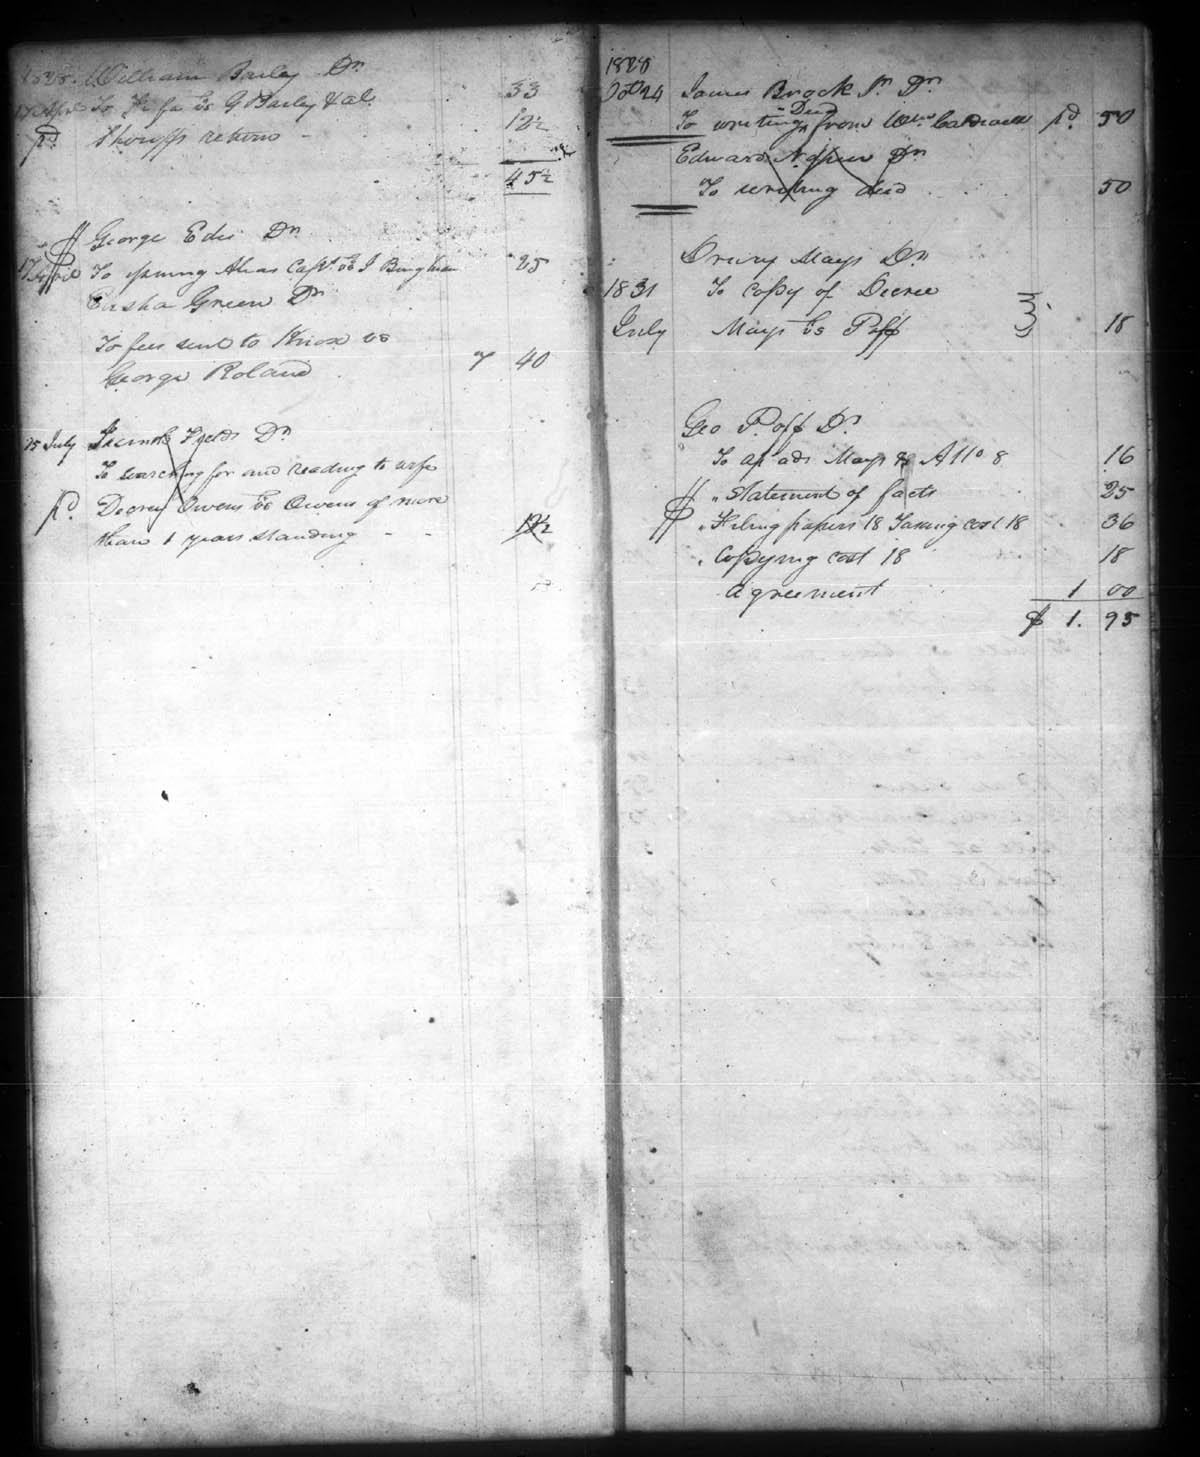 1828. William Bailey Dr
17 Apr To Fi fa vs G Bailey & al. 33
pd. Sheriffs return 12½
45½
George Dr
17 April To issuing Alias Caps. vs J Bingham 25
Elisha Green Dr
To fees sent to Knox vs
George Roland 7 40
25 July Fields Dr
To searching for and reading to wife
pd. Decree Owens vs Owens of more
than 1 years standing - - 12½
1828
Oct 24 James Brock Sr Dr
To writing Deed from Wm Caldwell pd. 50
Edward Napier Dr
To writing deed 50
Drury Mays Dr
1831 To copy of Decree
July Mays vs Poff 18
Geo Poff Dr
To af ads Mays & Atto. 8 16
" Statement of facts 25
" Filing papers 18 Taxing cost 18 36
" Copying cost 18 18
agreement 1 00
$ 1. 95